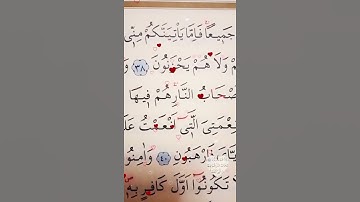 جَمِيعًا فَاِمَّا يَاْتِيَنَّكُمْ مِنّ۪ي
وَلَا هُمْ يَحْزَنُونَ ﴿٣٨﴾ وَ
صْحَابُ النَّارِ هُمْ ف۪يهَا
نِعْمَتِيَ الَّت۪ٓي اَنْعَمْتُ عَلَ
فَارْهَبُونِ ﴿٤٠﴾ وَاٰمِنُوا
تَكُونُٓوا اَوَّلَ كَافِرٍ بِه۪